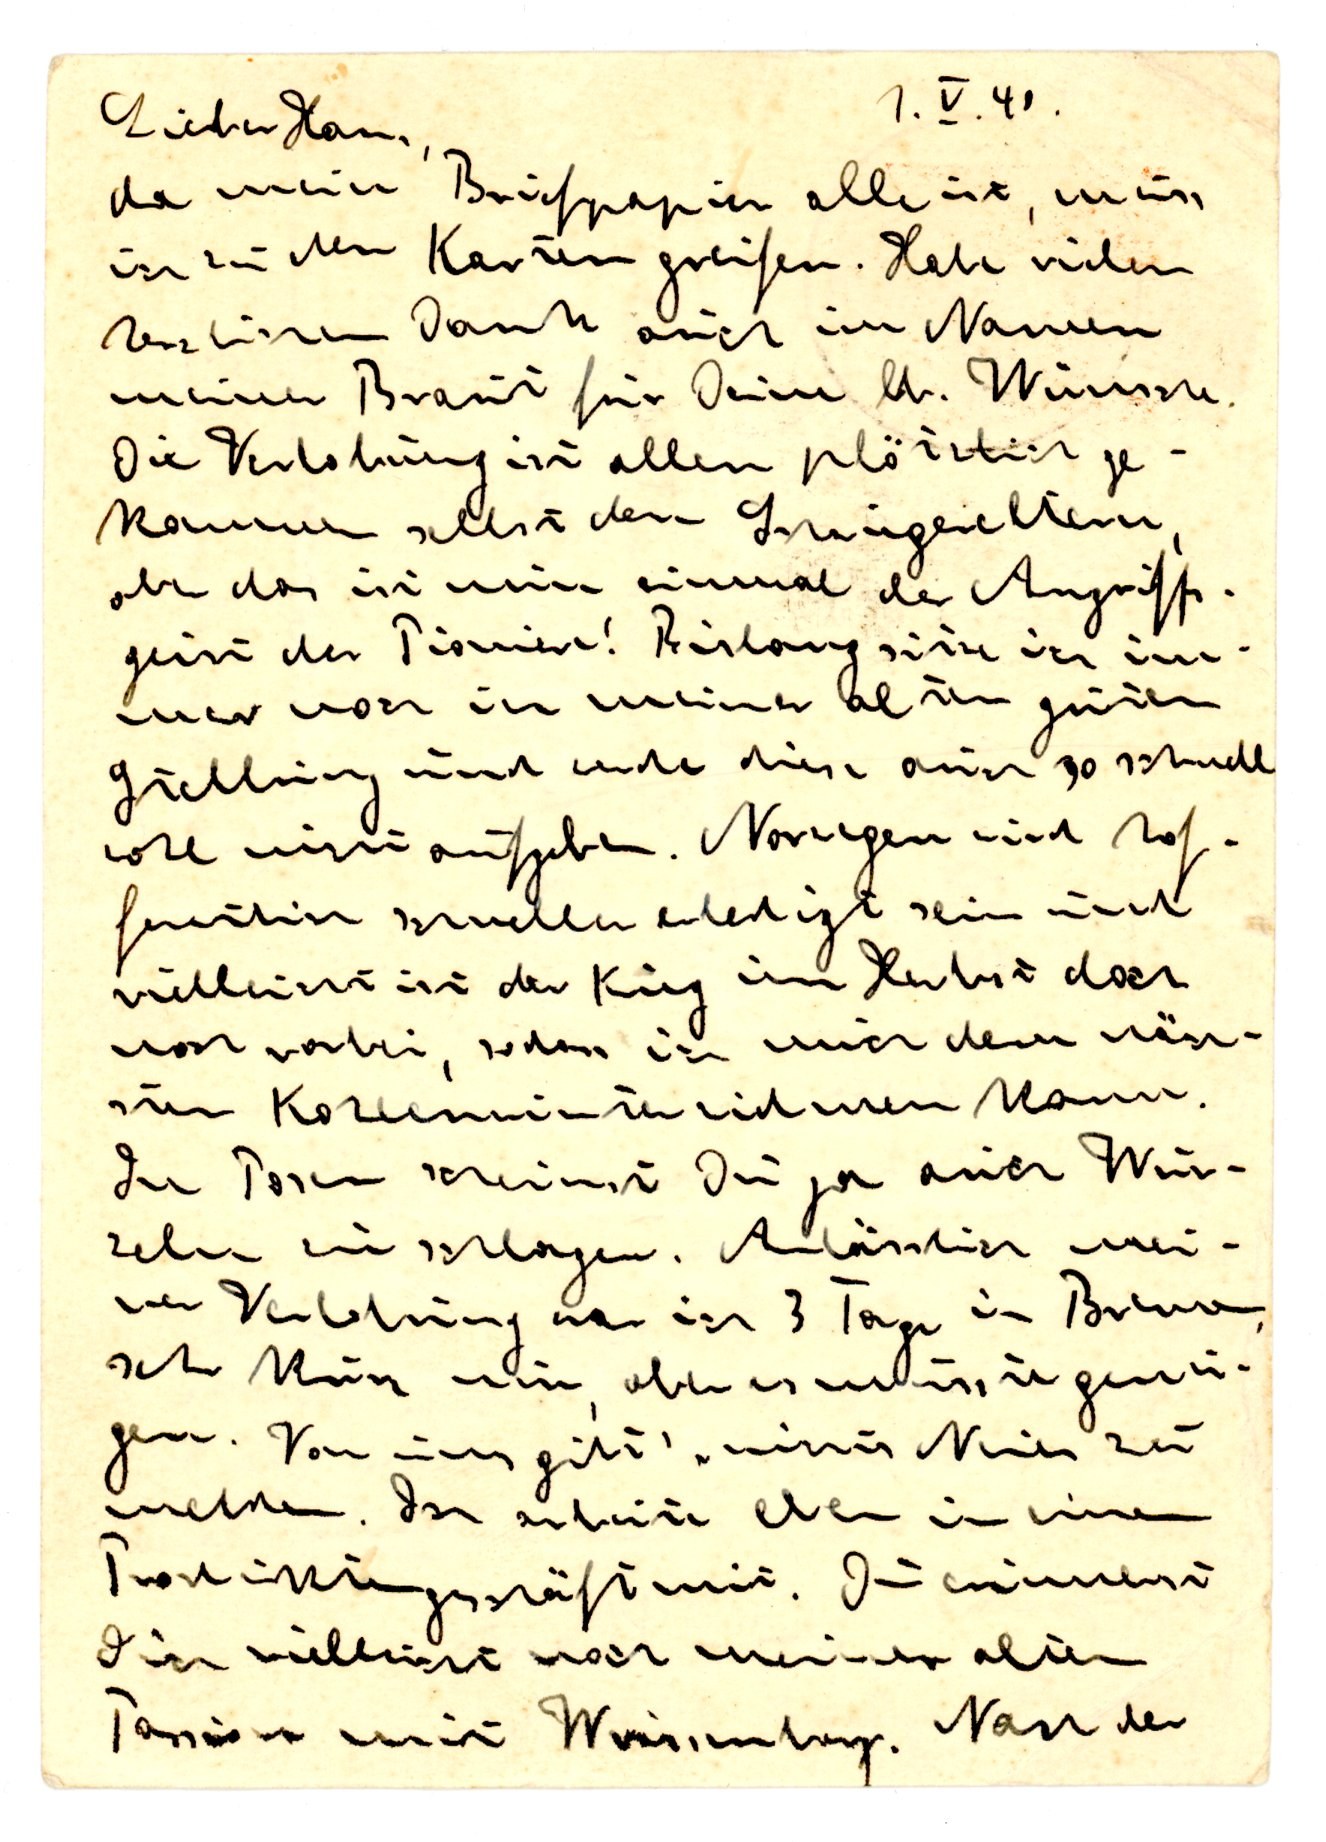 1. V. 40.
Lieber Hans,
da mein Briefpapier alle ist, muss
ich zu den Karten greifen. Habe vielen
herzlichen Dank auch im Namen
meiner Braut für Deine lb. Wünsche.
Die Verlobung ist allen plötzlich ge-
kommen selbst den Schwiegereltern,
aber das ist nun einmal der Angriffs-
geist der Pioniere! Bislang sitze ich im-
mer noch in meiner alten guten
Stellung und werde diese auch so schnell
wohl nicht aufgeben. Norwegen wird hof-
fentlich schnellen erledigt sein und
vielleicht ist der Krieg im Herbst doch
noch vorbei, sodass ich mich dem näch-
sten Kohlenwinter widmen kann.
In Posen scheinst Du ja auch Wur-
zeln zu schlagen. Anlässlich mei-
ner Verlobung war ich 3 Tage in Bremen,
sehr kurz nur, aber es musste genü-
gen. Von uns gibt's nichts Neues zu
melden. Ich arbeite eben in einem
mit. Du erinnerst
Dich vielleicht noch meiner alten
Passion mit. Nach der